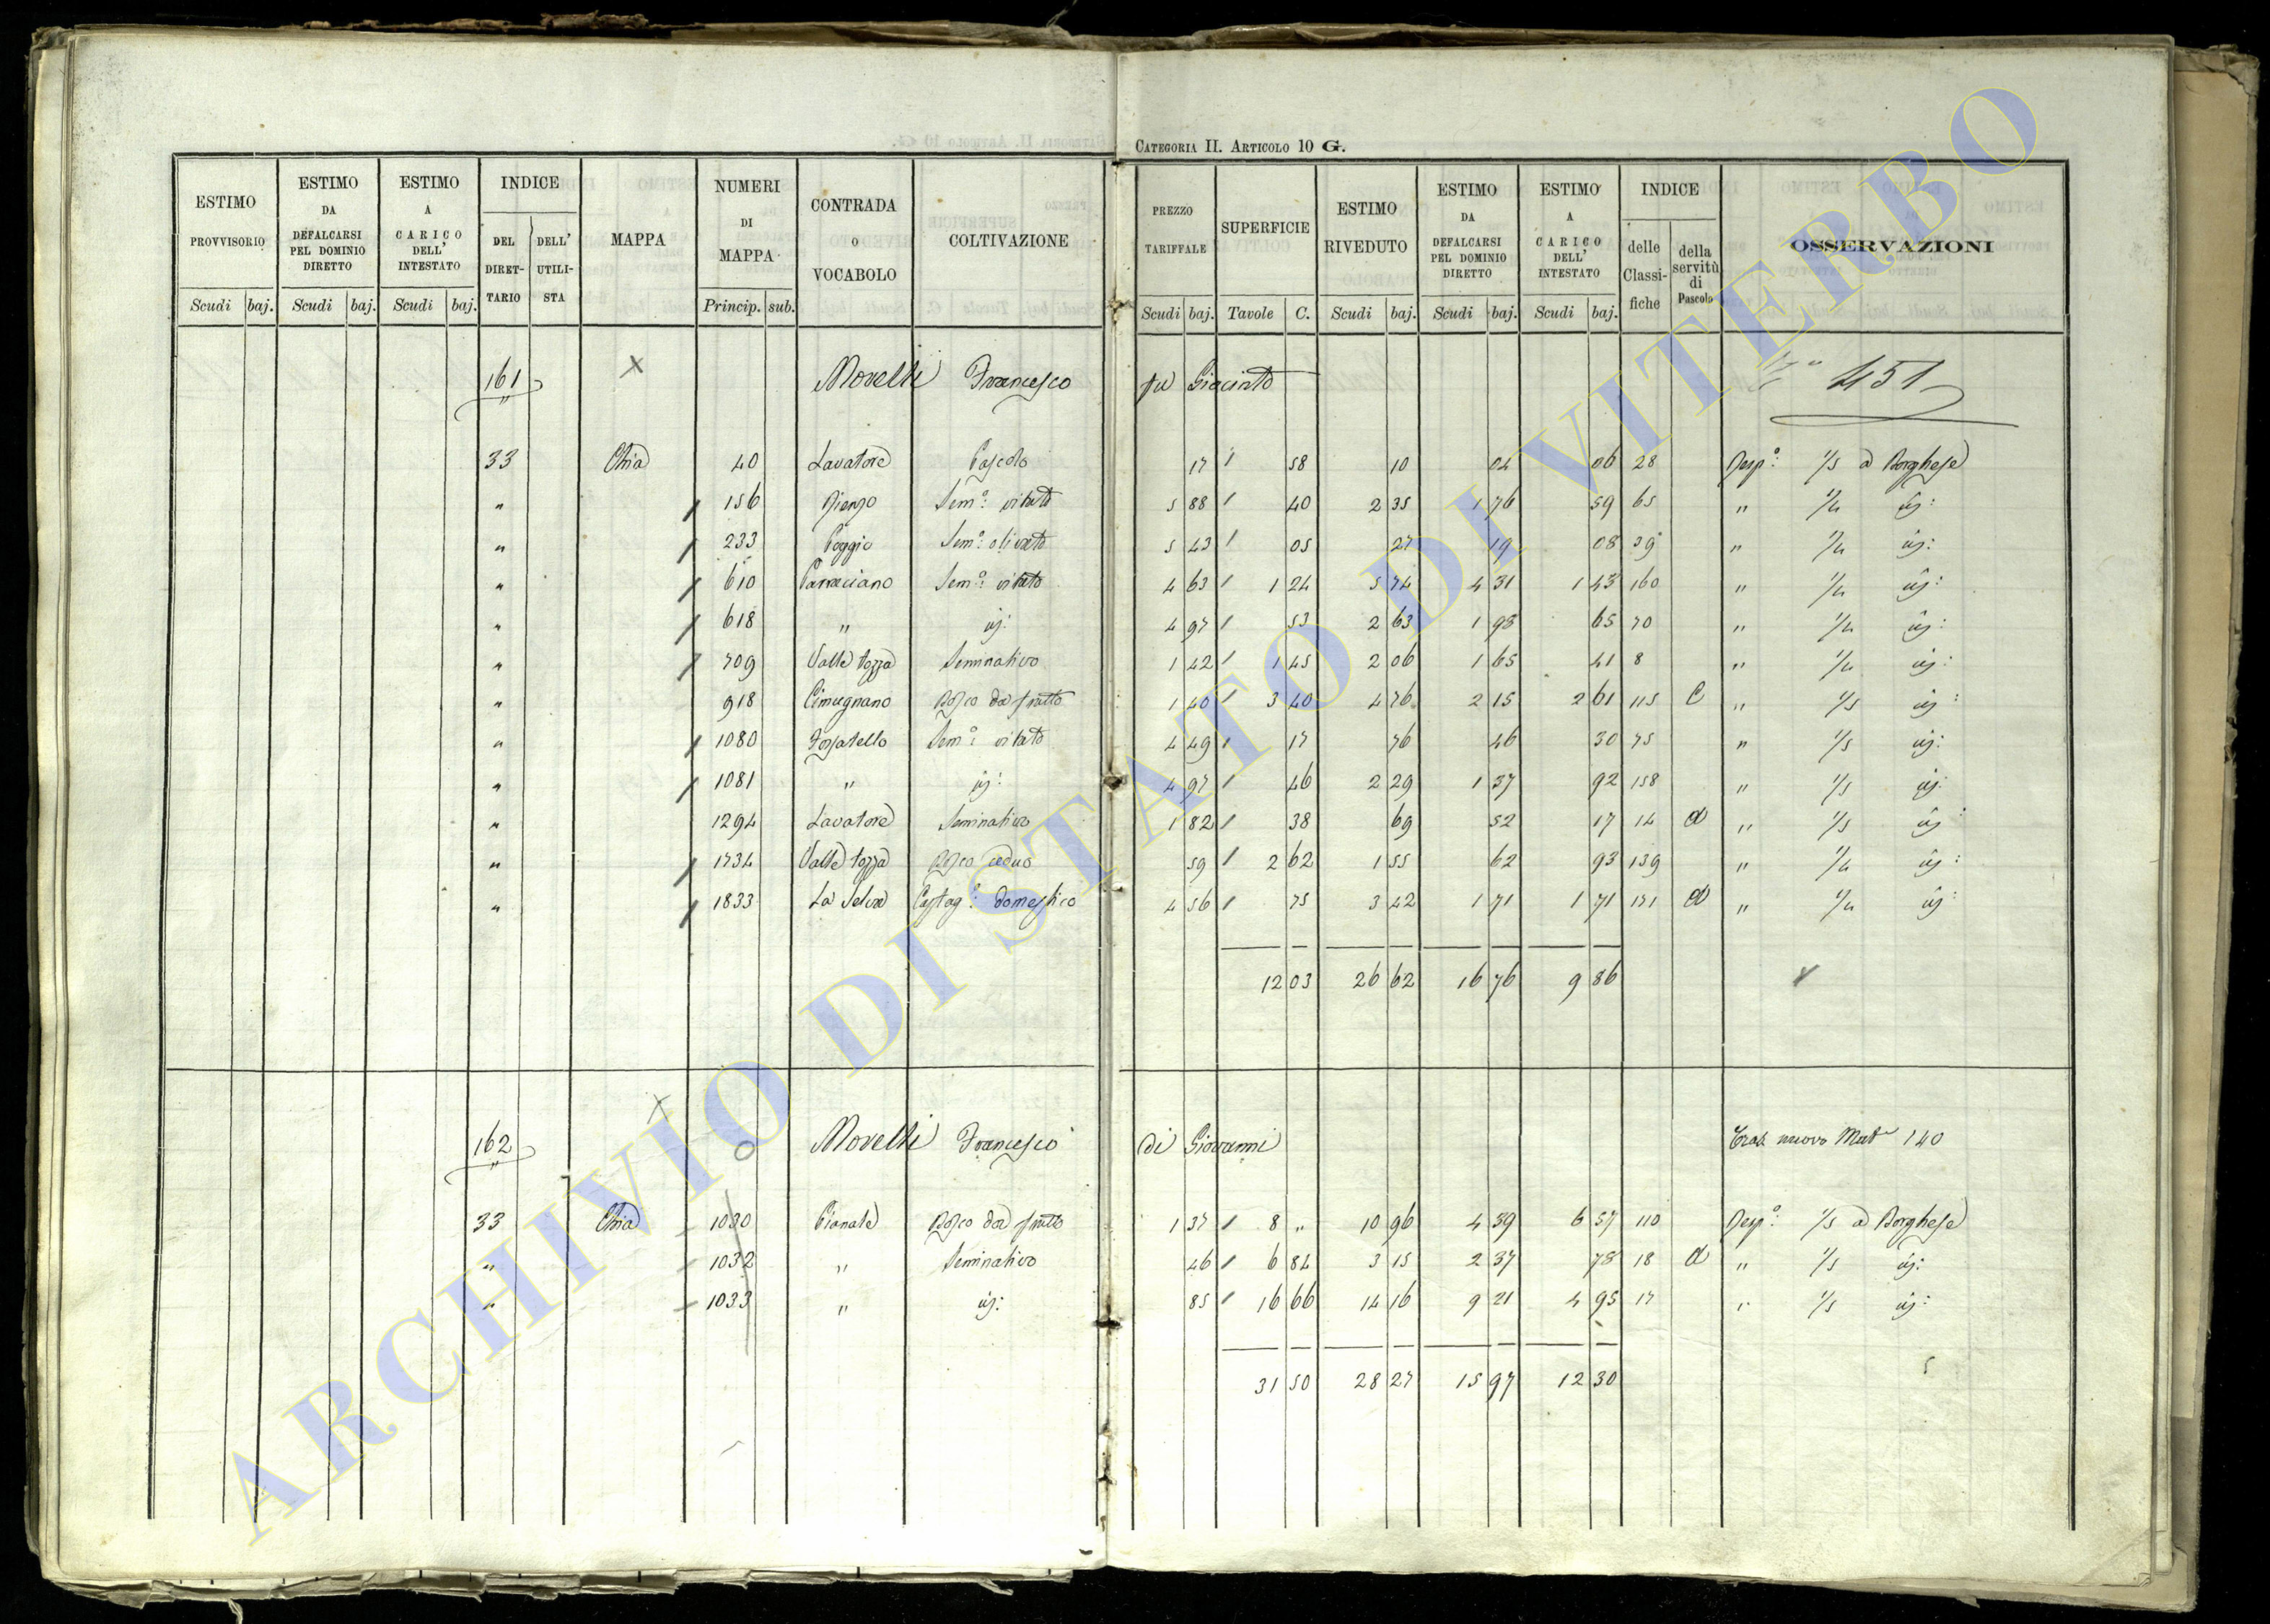 CATEGORIA II. ARTICOLO 10 G.
ESTIMO PROVVISORIO Scudi baj.
ESTIMO DA DEFALCARSI PEL DOMINIO DIRETTO Scudi baj.
ESTIMO A CARICO DELL' INTESTATO Scudi baj.
INDICE DEL DIRETTARIO DELL' UTILISTA
MAPPA
NUMERI DI MAPPA Princip. sub.
CONTRADA O VOCABOLO
COLTIVAZIONE
PREZZO TARIFFALE Scudi baj.
SUPERFICIE Tavole C.
ESTIMO RIVEDUTO Scudi baj.
ESTIMO DA DEFALCARSI PEL DOMINIO DIRETTO Scudi baj.
ESTIMO A CARICO DELL' INTESTATO Scudi baj.
INDICE delle Classifiche della servitù di Pascolo
OSSERVAZIONI
161 Morelli Francesco fu Giacinto 451
33 Chia 40 Lavatore Pascolo 17 58 10 04 06 28 Resp: 1/5 a Borghese
" 156 Sem: vitato 5 88 40 2 35 1 76 59 65 " 1/4 id:
" 233 Poggio Sem: olivato 5 43 05 27 19 08 39 " 1/4 id:
" 610 Sem: vitato 4 63 1 24 5 74 4 31 1 43 160 " 1/4 id:
" 618 " id: 4 97 53 2 63 1 98 65 70 " 1/4 id:
" 709 Valle tozza Seminativo 1 42 1 45 2 06 1 65 41 8 " 1/4 id:
" 918 Cimugnano Bosco da frutto 1 40 3 40 4 76 2 15 2 61 115 C " 1/5 id:
" 1080 Fossatello Sem: vitato 4 49 17 76 46 30 75 " 1/5 id:
" 1081 " id: 4 97 46 2 29 1 37 92 158 " 1/5 id:
" 1294 Lavatore Seminativo 1 82 38 69 52 17 14 d " 1/5 id:
" 1734 Valle tozza Bosco ceduo 59 2 62 1 55 62 93 139 " 1/4 id:
" 1833 La Selva Castag: domestico 4 56 75 3 42 1 71 1 71 171 d " 1/4 id:
12 03 26 62 16 76 9 86
162 Morelli Francesco di Giovanni nuovo Mat 140
33 Chia 1030 Pianale Bosco da frutto 1 37 8 " 10 96 4 39 6 57 110 Resp: 1/5 a Borghese
" 1032 " Seminativo 46 6 84 3 15 2 37 78 18 d " 1/5 id:
" 1033 " id: 85 16 66 14 16 9 21 4 95 17 " 1/5 id:
31 50 28 27 15 97 12 30
ARCHIVIO DI STATO DI VITERBO